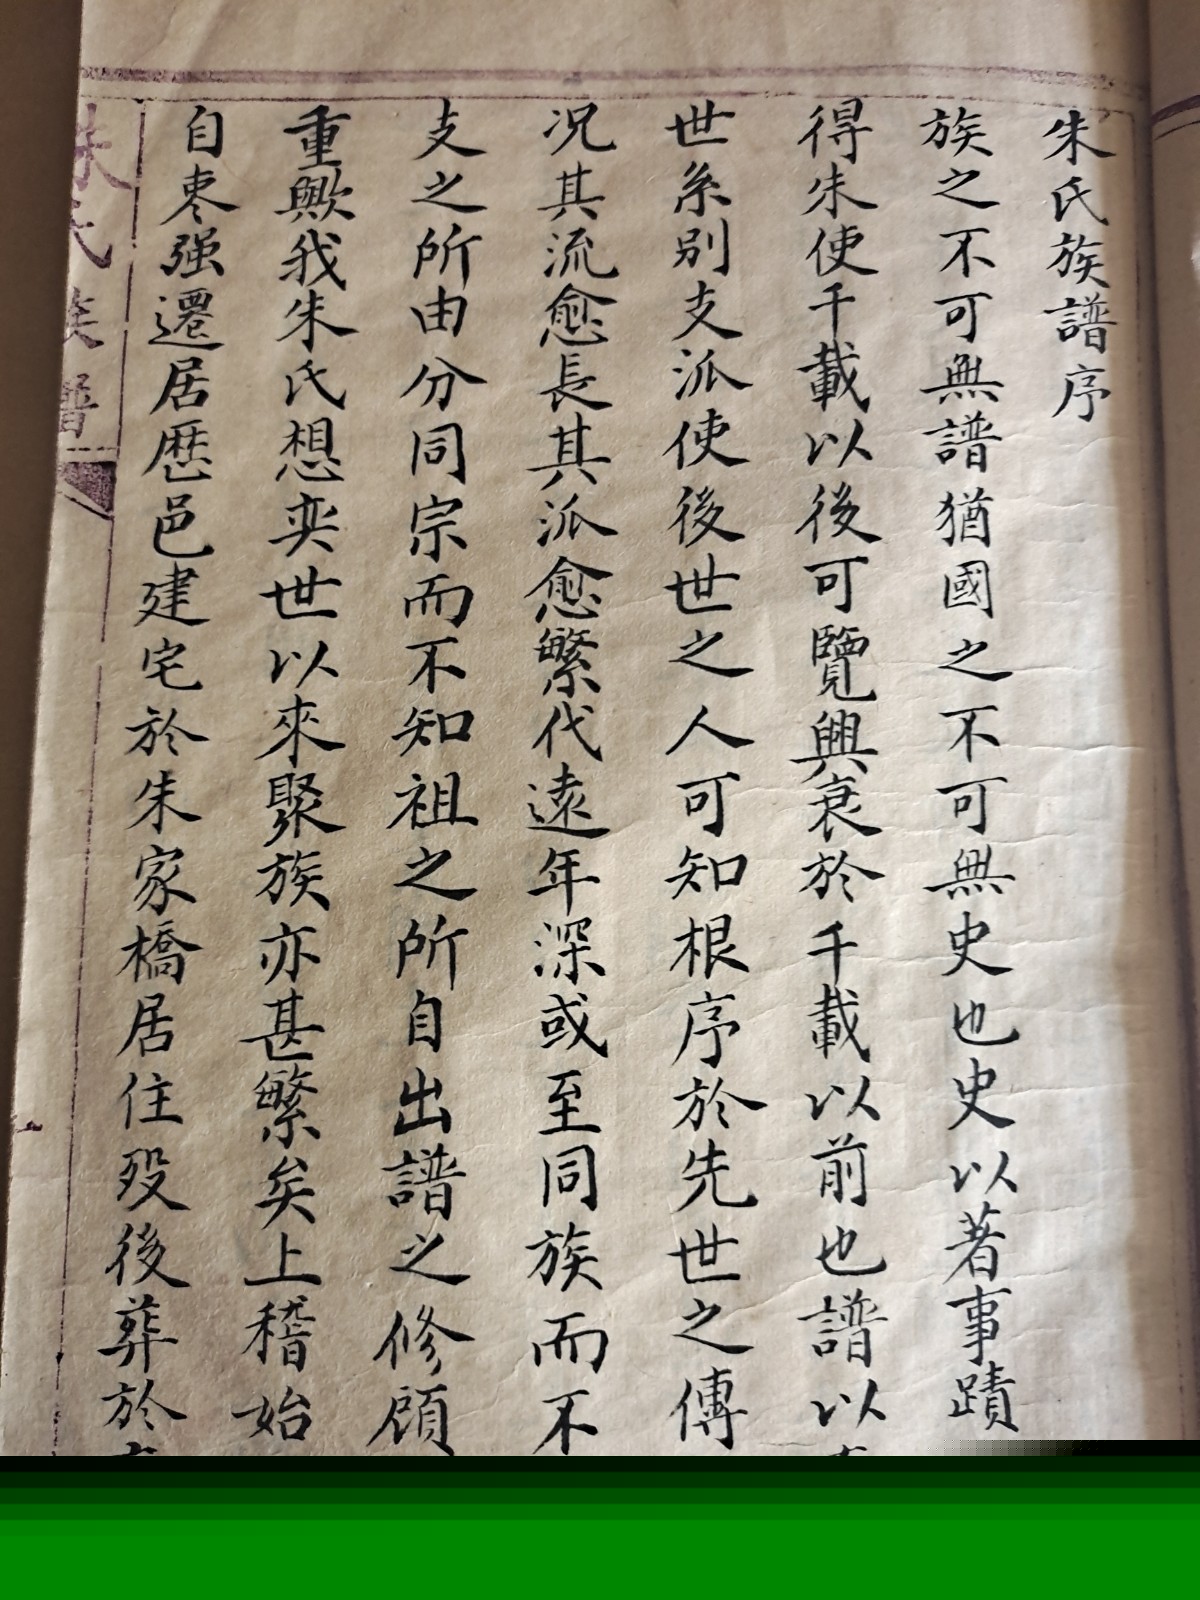 朱氏族譜序
族之不可無譜猶國之不可無史也史以著事蹟
得失使千載以後可覽興衰於千載以前也譜以
世系別支派使後世之人可知根序於先世之傳
况其流愈長其派愈繁代遠年深或至同族而不
支之所由分同宗而不知祖之所自出譜之修顧
重歟我朱氏想奕世以來聚族亦甚繁矣上稽始
自枣强遷居歷邑建宅於朱家橋居住歿後葬於
朱氏族譜